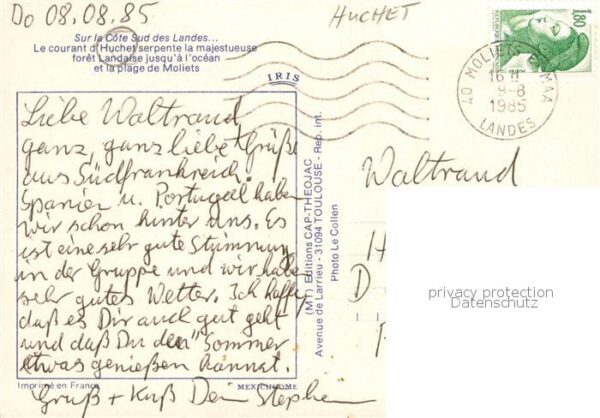 Do 08.08.85
HUCHET
Sur la Côte Sud des Landes...
Le courant d'Huchet serpente la majestueuse
forêt Landaise jusqu'à l'océan
et la plage de Moliets
IRIS
1,80
40 MOLIETS MAA
16 H
9-8
1985
LANDES
Liebe Waltraud
ganz, ganz liebe Grüße
aus Südfrankreich.
Spanien u. Portugal haben
wir schon hinter uns. Es
ist eine sehr gute Stimmung
in der Gruppe und wir haben
sehr gutes Wetter. Ich hoffe,
daß es Dir auch gut geht
und daß Du den Sommer
etwas genießen kannst.
Gruß + Kuß Dein Stephan
Imprimé en France
MEXICHROME
(MT) Editions CAP-THEOJAC
Avenue de Larrieu - 31094 TOULOUSE - Rep. int.
Photo Le Collen
Waltraud
H
D
privacy protection
Datenschutz